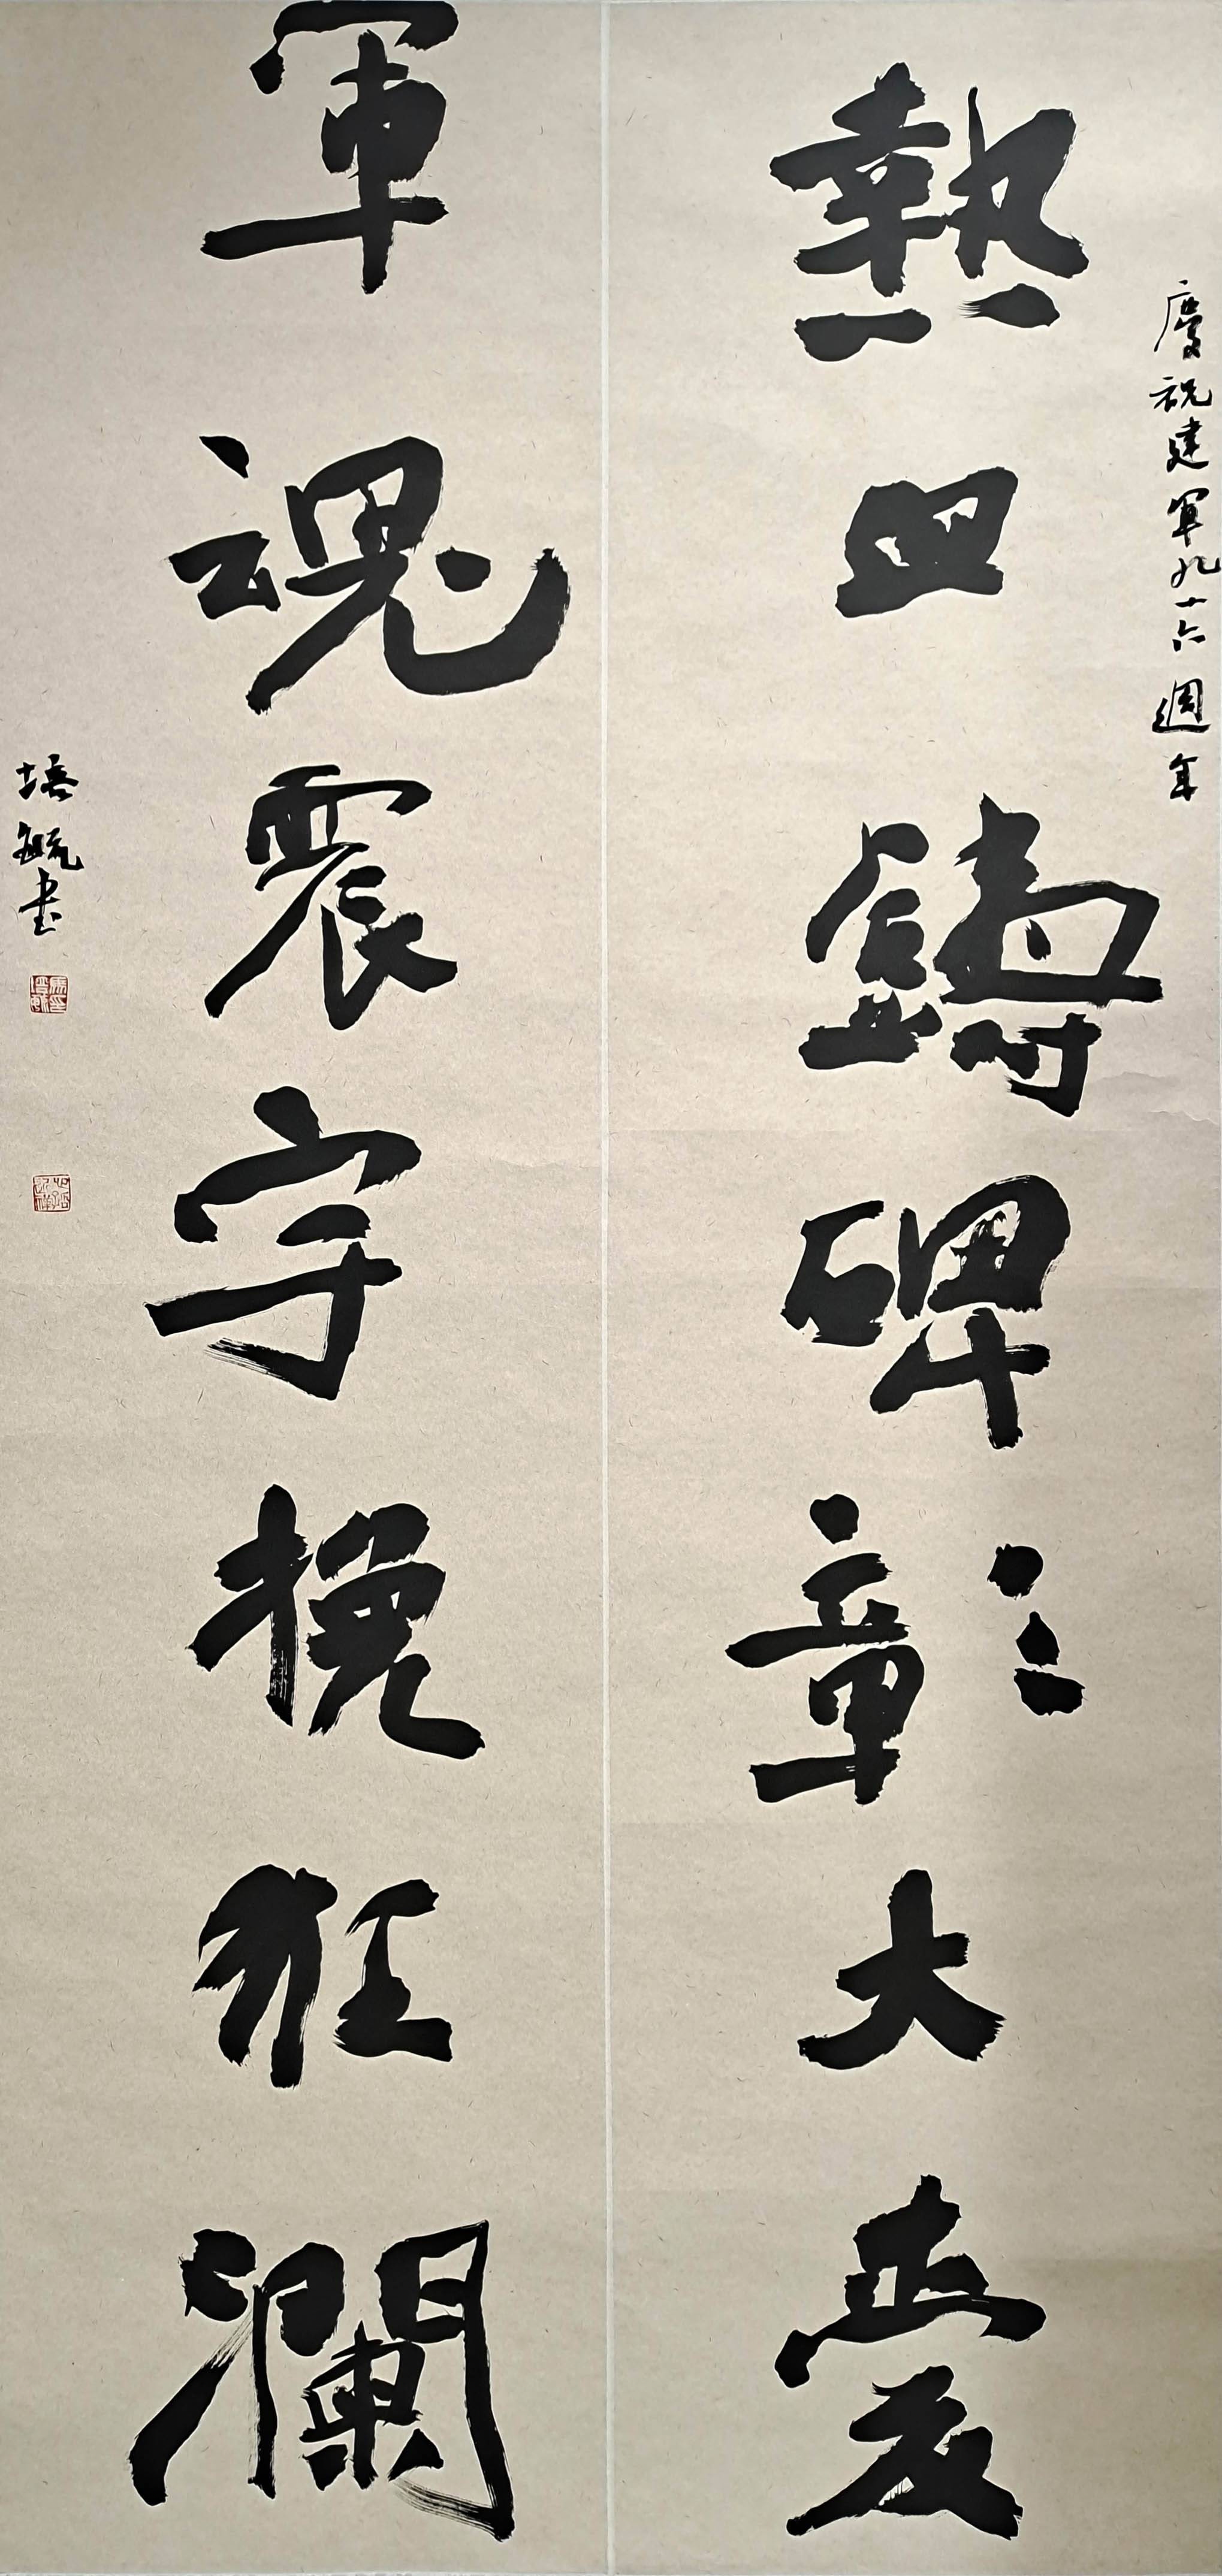 慶祝建軍九十六週年
熱血鑄碑彰大愛
軍魂震宇挽狂瀾
培毓書